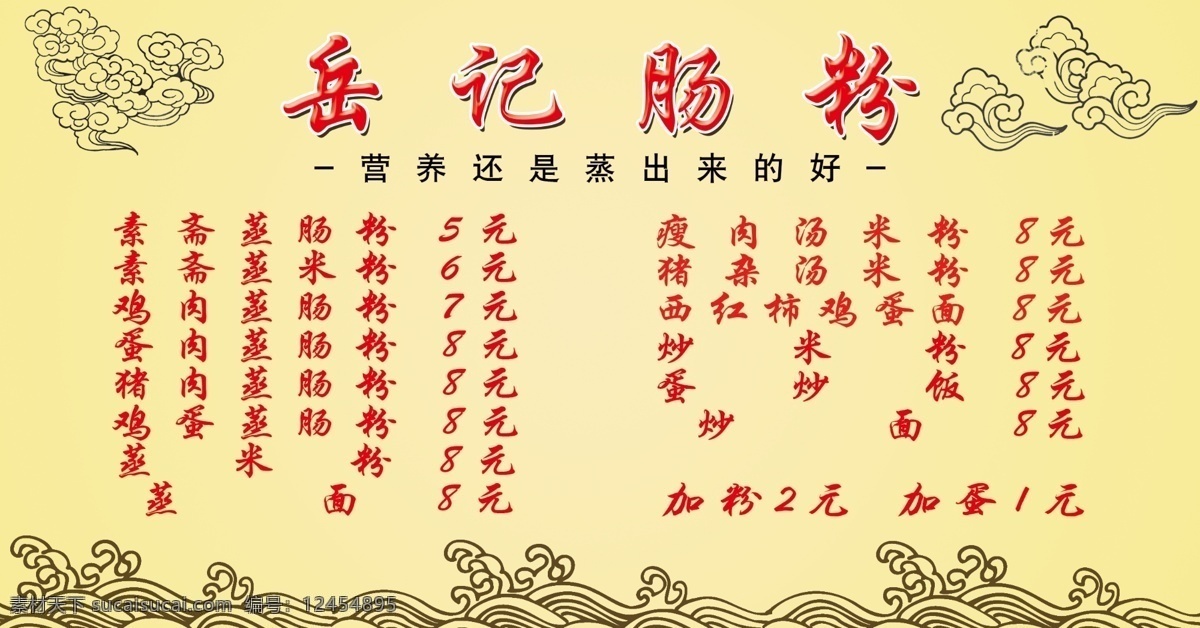 岳记肠粉
-营养还是蒸出来的好-
素斋蒸肠粉 5元
素斋蒸米粉 6元
鸡肉蒸肠粉 7元
蛋肉蒸肠粉 8元
猪肉蒸肠粉 8元
鸡蛋蒸肠粉 8元
蒸米粉 8元
蒸面 8元
瘦肉汤米粉 8元
猪杂汤米粉 8元
西红柿鸡蛋面 8元
炒米粉 8元
蛋炒饭 8元
炒面 8元
加粉2元 加蛋1元
素材天下 sucaisucai.com 编号：12454895